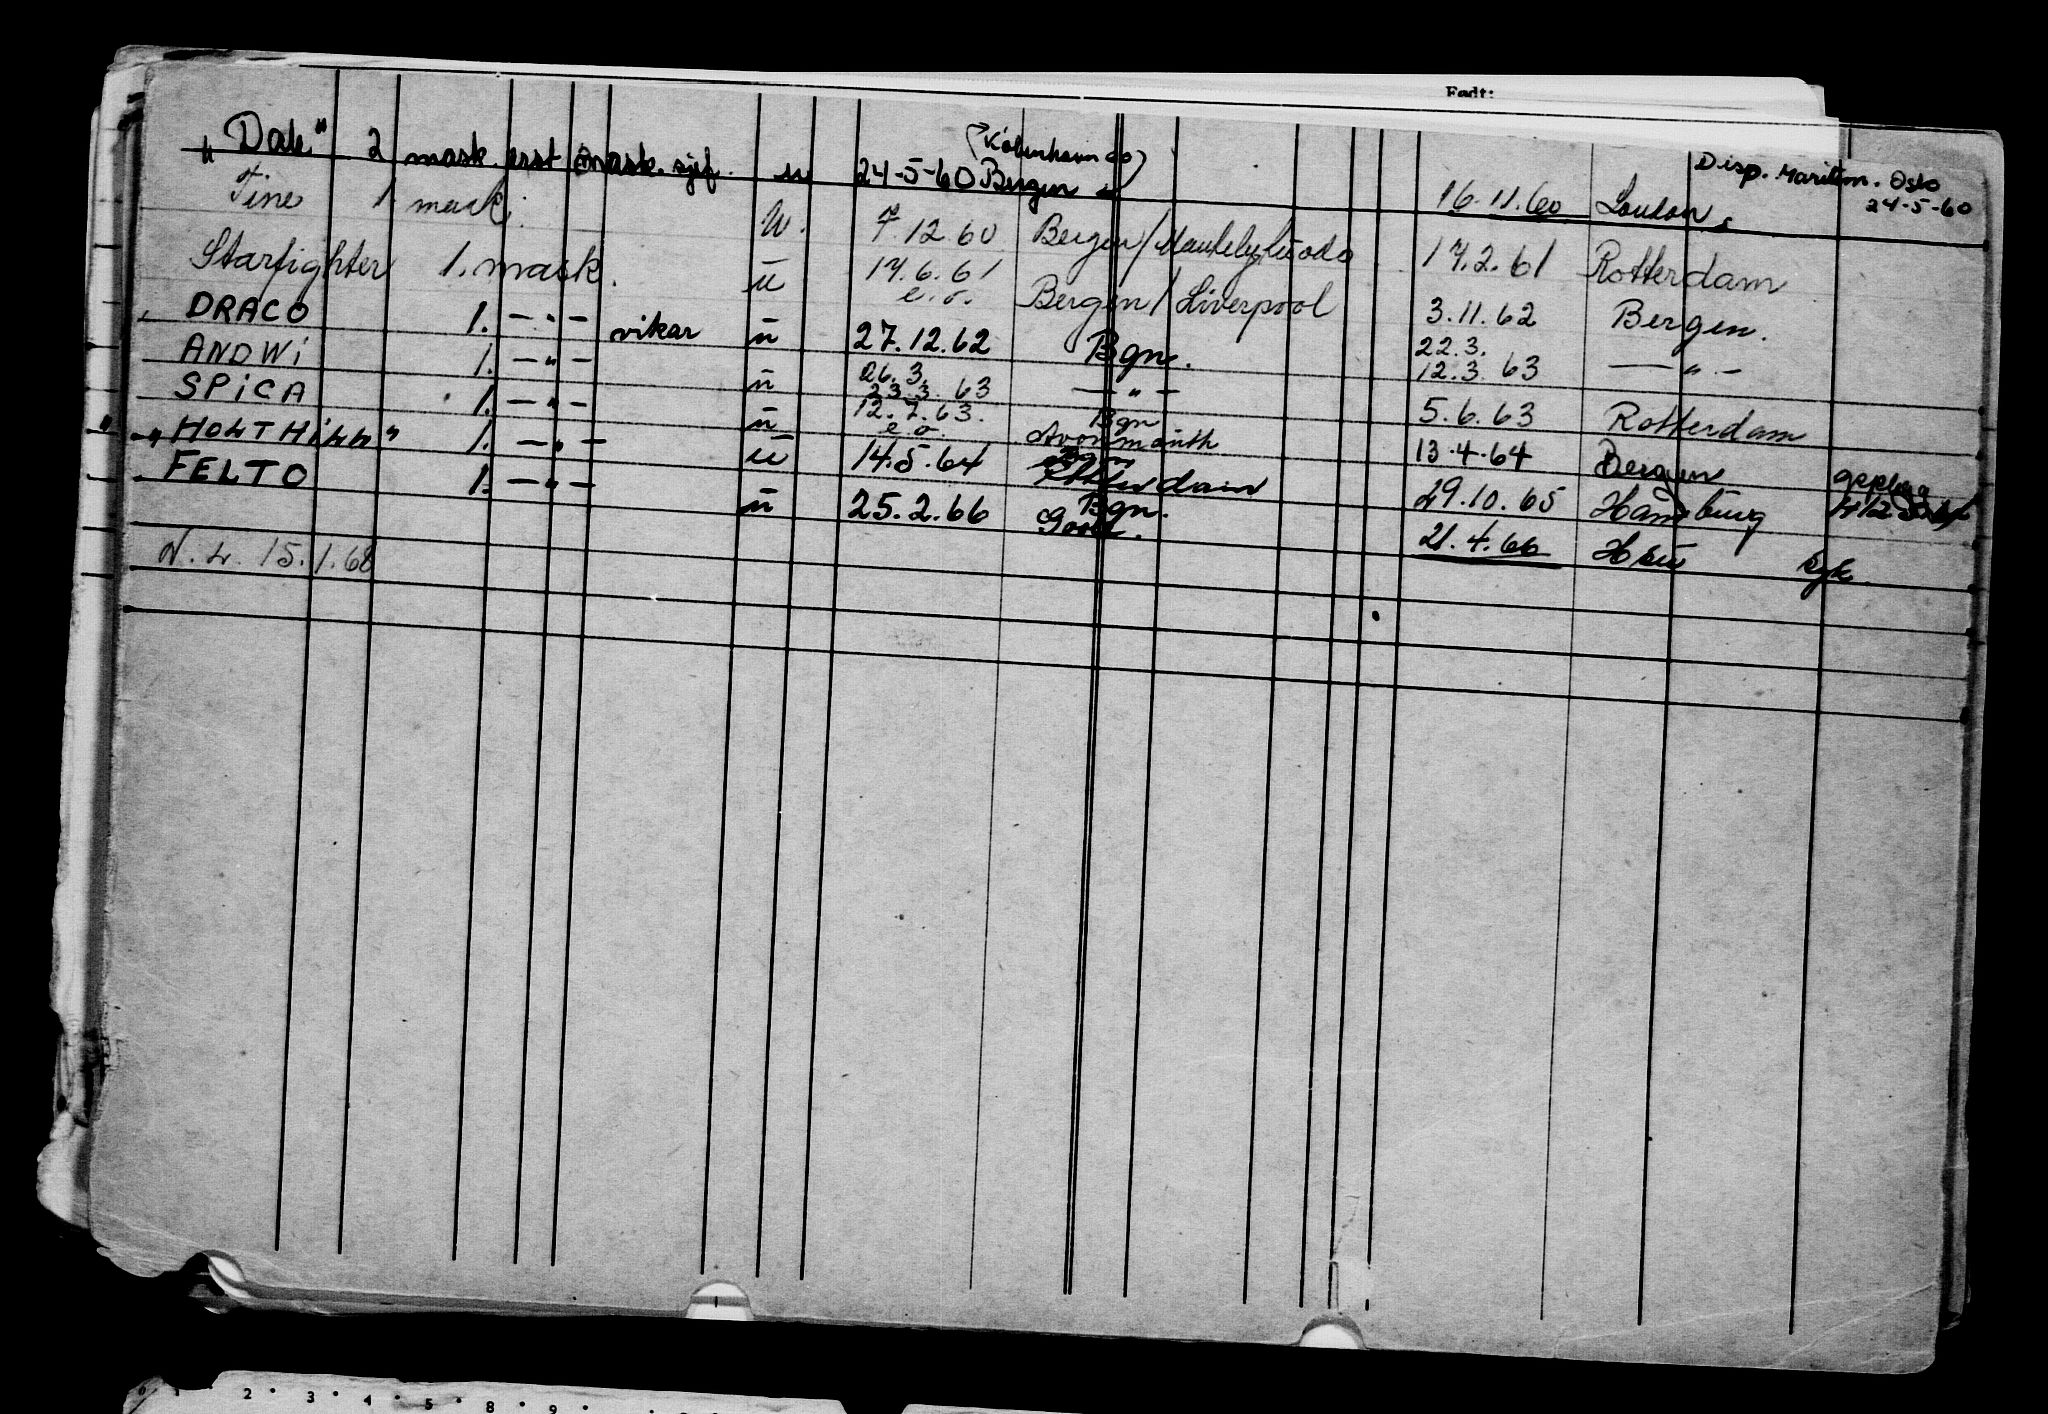 Født:
"Dale" 2 mask. erst. mask. sjef. u 24-5-60 Bergen (København eo) 16.11.60 London. Disp. Maritim. Oslo 24-5-60
Tine 1 mask. u. 7.12.60 Bergen/ 17.2.61 Rotterdam
Starfighter 1. mask. u 17.6.61 e.o. Bergen/Liverpool 3.11.62 Bergen.
DRACO 1. -"- vikar u 27.12.62 Bgn. 22.3. 12.3.63 -"-
ANDWi 1. -"- u 26.3. 23.3.63 -"- 5.6.63 Rotterdam
SPiCA 1. -"- u 12.7.63. e.o. Bgn Avonmouth 13.4.64 Bergen
"HOLTHiLL" 1. -"- u 14.5.64 Bgn Rotterdam 29.10.65 Hamburg
FELTO 1. -"- u 25.2.66 Bgn. Goole. 21.4.66 syk.
N.L. 15.1.68
0 1 2 3 4 5 8 9